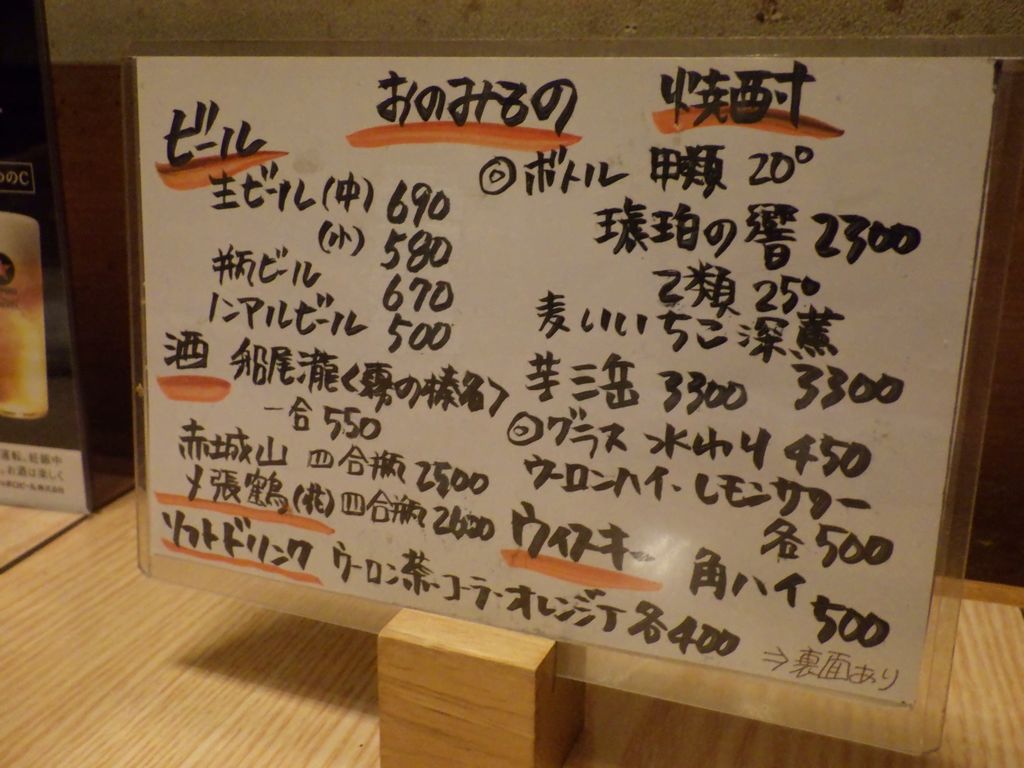 おのみもの
ビール
生ビール(中) 690
(小) 580
瓶ビール 670
ノンアルビール 500
酒 船尾瀧<霧の榛名>
一合 550
赤城山 四合瓶 2500
〆張鶴 四合瓶 2600
ソフトドリンク ウーロン茶・コーラ・オレンジ 各400
焼酎
◎ボトル 甲類 20°
琥珀の響 2300
乙類 25°
麦 いいちこ深薫
3300
芋 三岳 3300
◎グラス 水わり 450
ウーロンハイ・レモンサワー
各500
ウイスキー 角ハイ
500
⇒裏面あり
のC
運転。妊娠中
お酒は楽しく